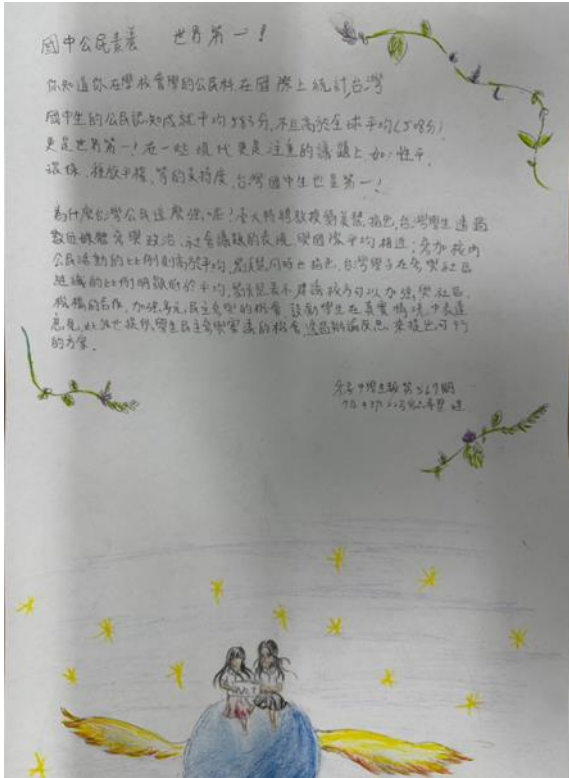 國中公民素養 世界第一!
你知道你在學校會學的公民科,在國際上統計,台灣
國中生的公民認知成就平均583分,不但高於全球平均(508分)
更是世界第一!在一些現代更是注重的議題上,如:性平、
環保、種族平權、等的支持度,台灣國中生也是第一!
為什麼台灣公民這麼強呢?臺大特聘教授劉美慧指出,台灣學生透過
數位媒體參與政治、社會議題的表現,與國際平均相近;參加校內
公民活動的比例則高於平均,劉美慧同時也指出,台灣學子在參與社區
組織的比例明顯低於平均,劉美慧表示建議校方可以加強與社區、
機構的合作,加強多元民主參與的機會,鼓勵學生在真實情境中表達
意見,此外也提供學生民主參與審議的機會,透過辯論反思,來提出可行
的方案。
參考中學生報第567期